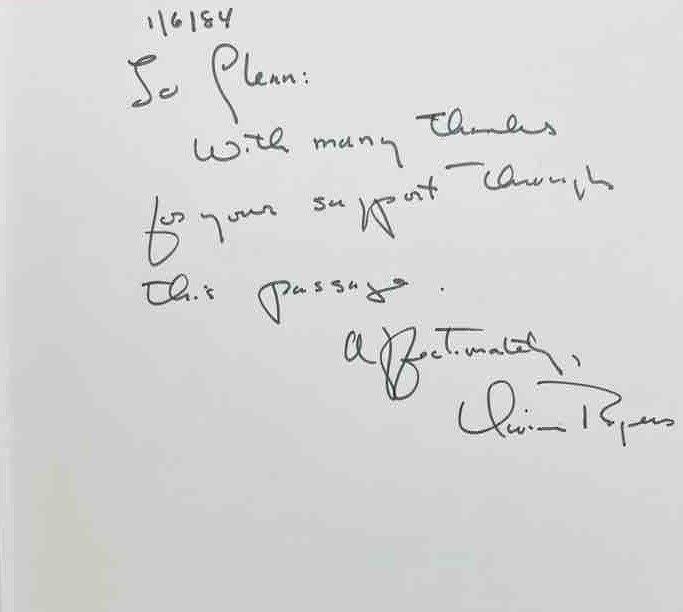 1/6/84
To Glenn:
With many thanks
for your support through
this passage.
Affectionately,